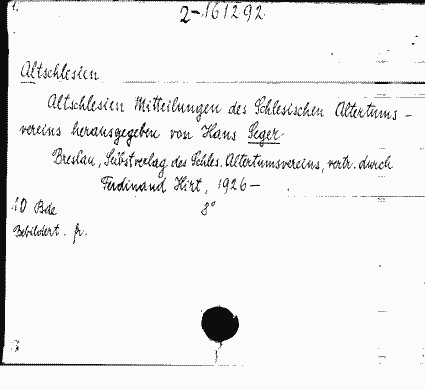 2-161292
Altschlesien
Altschlesien Mitteilungen des Schlesischen Altertums-
vereins herausgegeben von Hans Seger.
Breslau, Selbstverlag des Schles. Altertumsvereins, vertr. durch
Ferdinand Hirt, 1926—
10 Bde 8°
Bebildert.